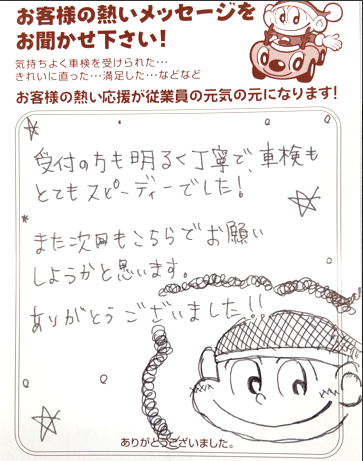 お客様の熱いメッセージを
お聞かせ下さい!
気持ちよく車検を受けられた…
きれいに直った…満足した…などなど
お客様の熱い応援が従業員の元気の元になります!
受付の方も明るく丁寧で、車検も
とてもスピーディーでした!
また次回もこちらでお願い
しようかと思います。
ありがとうございました!!
ありがとうございました。